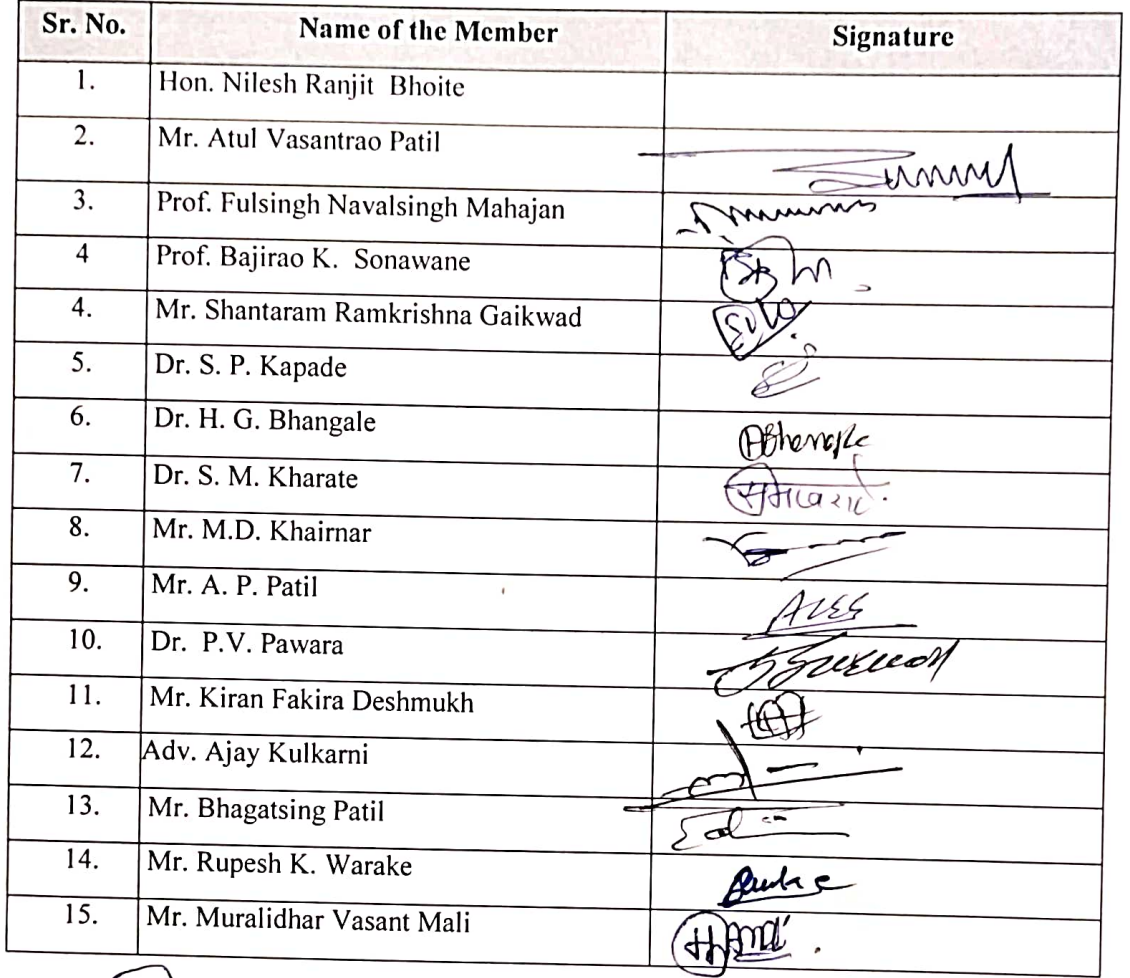 Sr. No. Name of the Member Signature
1. Hon. Nilesh Ranjit Bhoite
2. Mr. Atul Vasantrao Patil
3. Prof. Fulsingh Navalsingh Mahajan
4 Prof. Bajirao K. Sonawane
4. Mr. Shantaram Ramkrishna Gaikwad
5. Dr. S. P. Kapade
6. Dr. H. G. Bhangale
7. Dr. S. M. Kharate
8. Mr. M.D. Khairnar
9. Mr. A. P. Patil
10. Dr. P.V. Pawara
11. Mr. Kiran Fakira Deshmukh
12. Adv. Ajay Kulkarni
13. Mr. Bhagatsing Patil
14. Mr. Rupesh K. Warake
15. Mr. Muralidhar Vasant Mali